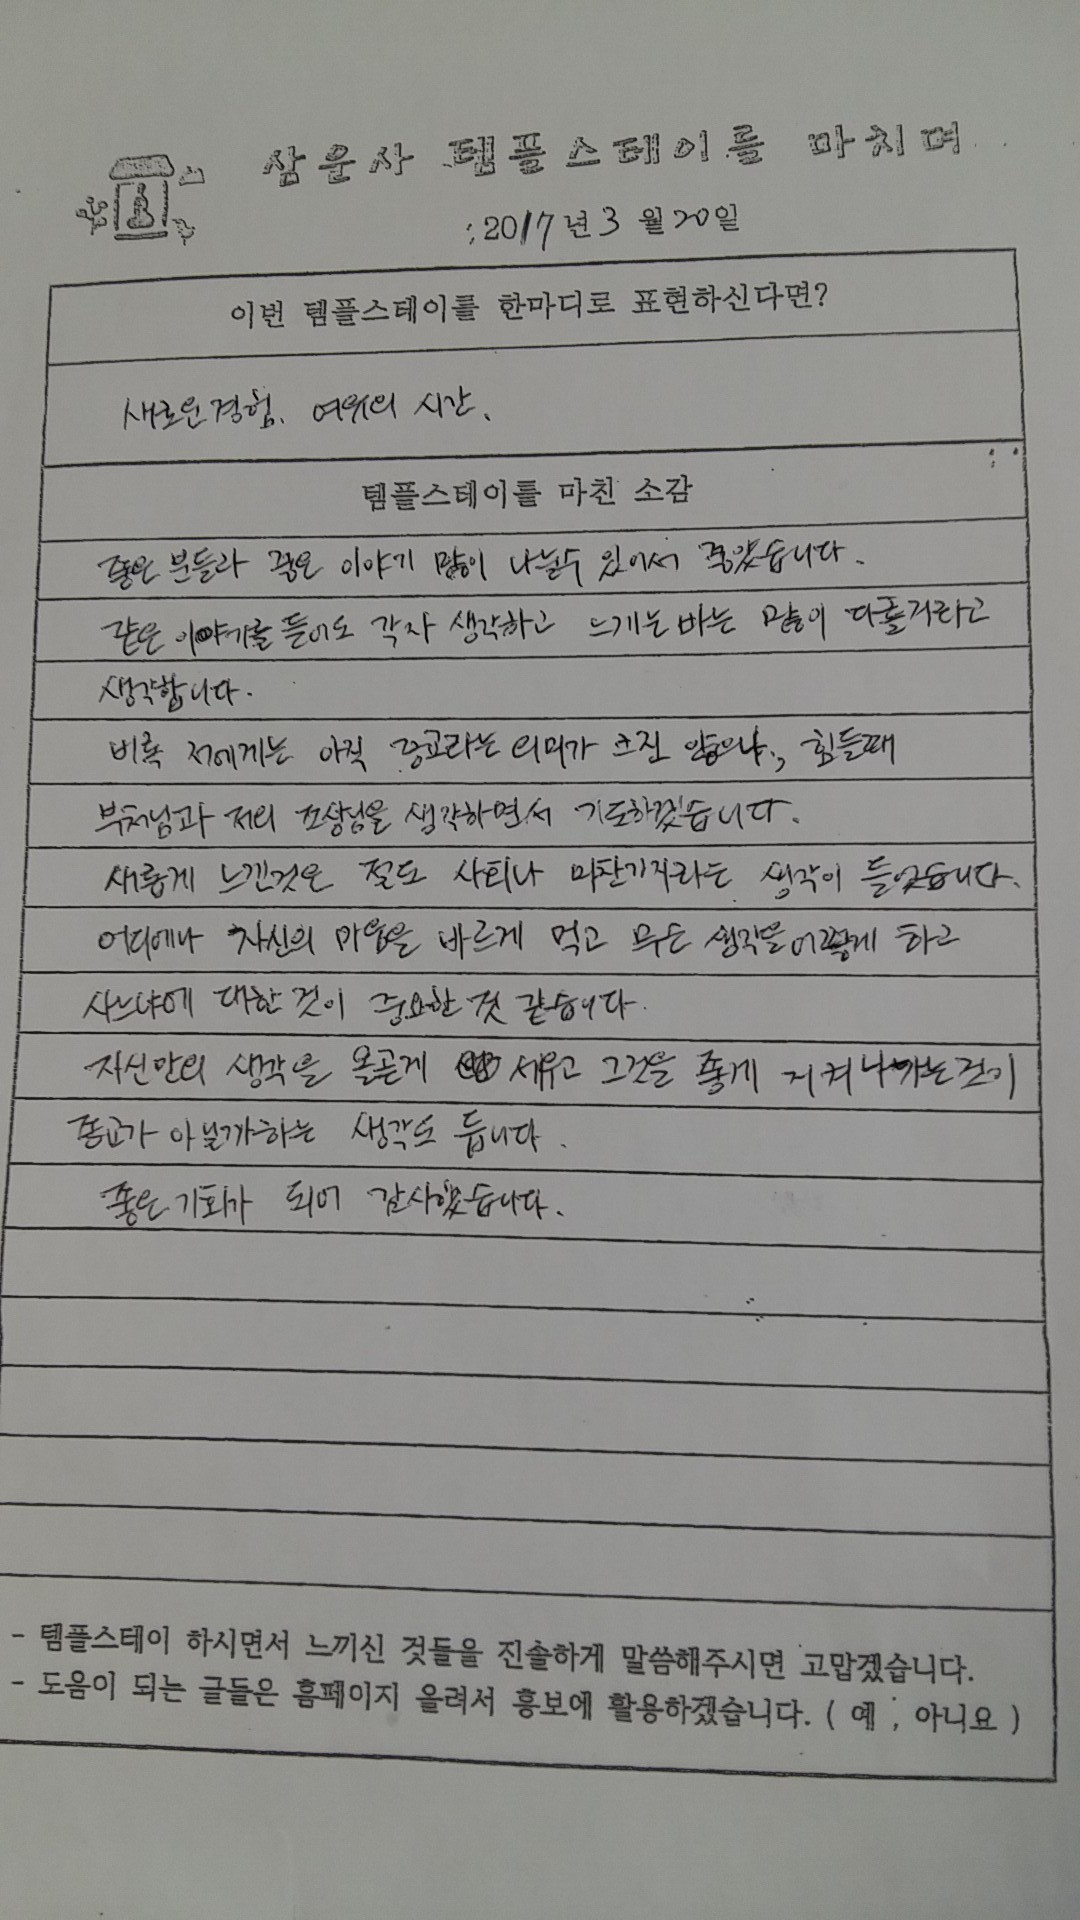 삼운사 템플스테이를 마치며
: 2017년 3월 20일
이번 템플스테이를 한마디로 표현하신다면?
새로운경험. 여유의 시간.
템플스테이를 마친 소감
좋은 분들과 좋은 이야기 많이 나눌수 있어서 좋았습니다.
같은 이야기를 들어도 각자 생각하고 느끼는 바는 많이 다를거라고
생각합니다.
비록 저에게는 아직 종교라는 의미가 크진 않으나, 힘들때
부처님과 저의 조상님을 생각하면서 기도하겠습니다.
새롭게 느낀것은 절도 사회나 마찬가지라는 생각이 들었습니다.
어디에나 자신의 마음을 바르게 먹고 무슨 생각을 어떻게 하고
사느냐에 대한 것이 중요한 것 같습니다.
자신만의 생각을 올곧게 세우고 그것을 좋게 지켜나가는것이
종교가 아닐까하는 생각도 듭니다.
좋은기회가 되어 감사했습니다.
- 템플스테이 하시면서 느끼신 것들을 진솔하게 말씀해주시면 고맙겠습니다.
- 도움이 되는 글들은 홈페이지 올려서 홍보에 활용하겠습니다. ( 예 , 아니요 )